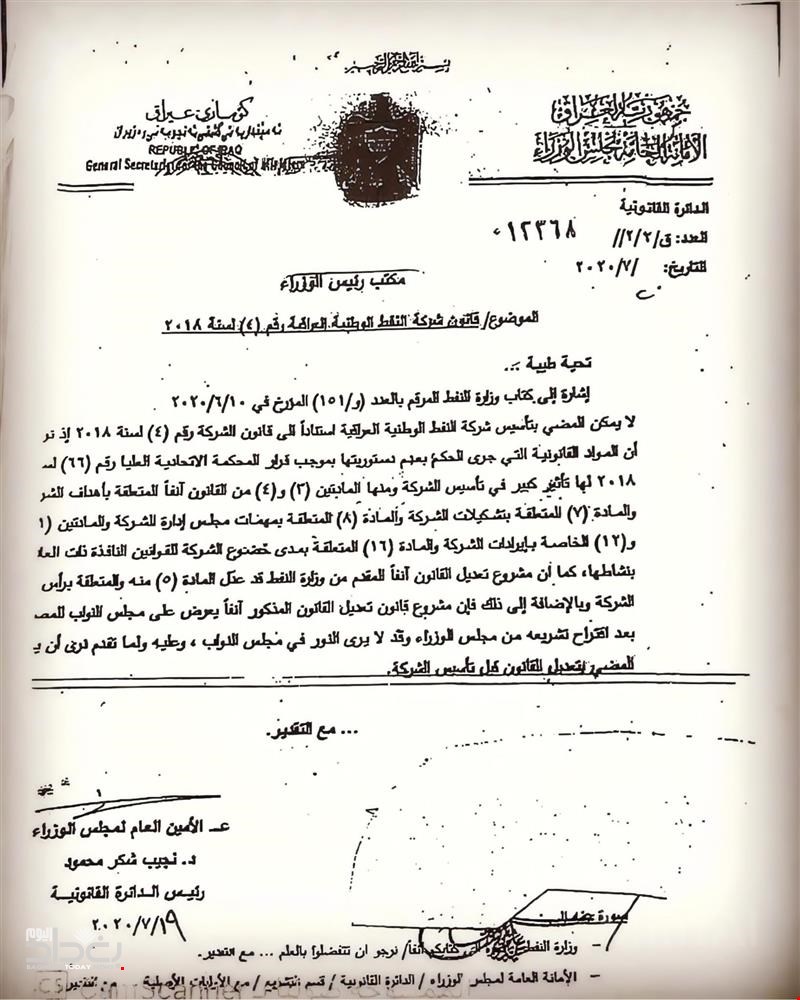 بسم الله الرحمن الرحيم
كۆماری عیراق
جمهورية العراق
الأمانة العامة لمجلس الوزراء
REPUBLIC OF IRAQ
General Secretariat for the Council of Ministers
الدائرة القانونية
العدد: ق/٢/٢// ٠١٢٣٦٨
التاريخ: /٢٠٢٠/٧
مكتب رئيس الوزراء
الموضوع/ قانون شركة النفط الوطنية العراقية رقم (٤) لسنة ٢٠١٨
تحية طيبة ...
إشارة إلى كتاب وزارة النفط المرقم بالعدد (و/١٥١) المؤرخ في ٢٠٢٠/٦/١٠
لا يمكن المضي بتأسيس شركة النفط الوطنية العراقية استناداً الى قانون الشركة رقم (٤) لسنة ٢٠١٨ إذ تر
أن المواد القانونية التي جرى الحكم بعدم دستوريتها بموجب قرار المحكمة الاتحادية العليا رقم (٦٦) لس
٢٠١٨ لها تأثير كبير في تأسيس الشركة ومنها المادتين (٣) و(٤) من القانون آنفاً المتعلقة بأهداف الشر
والمادة (٧) المتعلقة بتشكيلات الشركة والمادة (٨) المتعلقة بمهمات مجلس إدارة الشركة والمادتين (١
و(١٢) الخاصة بإيرادات الشركة والمادة (١٦) المتعلقة بمدى خضوع الشركة للقوانين النافذة ذات العلا
بنشاطها، كما أن مشروع تعديل القانون آنفاً المقدم من وزارة النفط قد عدل المادة (٥) منه والمتعلقة برأس
الشركة وبالإضافة إلى ذلك فإن مشروع قانون تعديل القانون المذكور آنفاً يعرض على مجلس النواب للمص
بعد اقتراح تشريعه من مجلس الوزراء وقد لا يرى النور في مجلس النواب ، وعليه ولما تقدم نرى أن ي
المضي بتعديل القانون قبل تأسيس الشركة.
... مع التقدير.
عـ الأمين العام لمجلس الوزراء
د. نجيب شكر محمود
رئيس الدائرة القانونية
٢٠٢٠/٧/١٩
صورة عنه الى
- وزارة النفط / كتابكم آنفاً/ نرجو ان تتفضلوا بالعلم ... مع التقدير.
- الأمانة العامة لمجلس الوزراء / الدائرة القانونية / قسم التشريع / مع الأوليات الأصلية ... مع التقدير
بغداد اليوم
TODAY
CamScanner